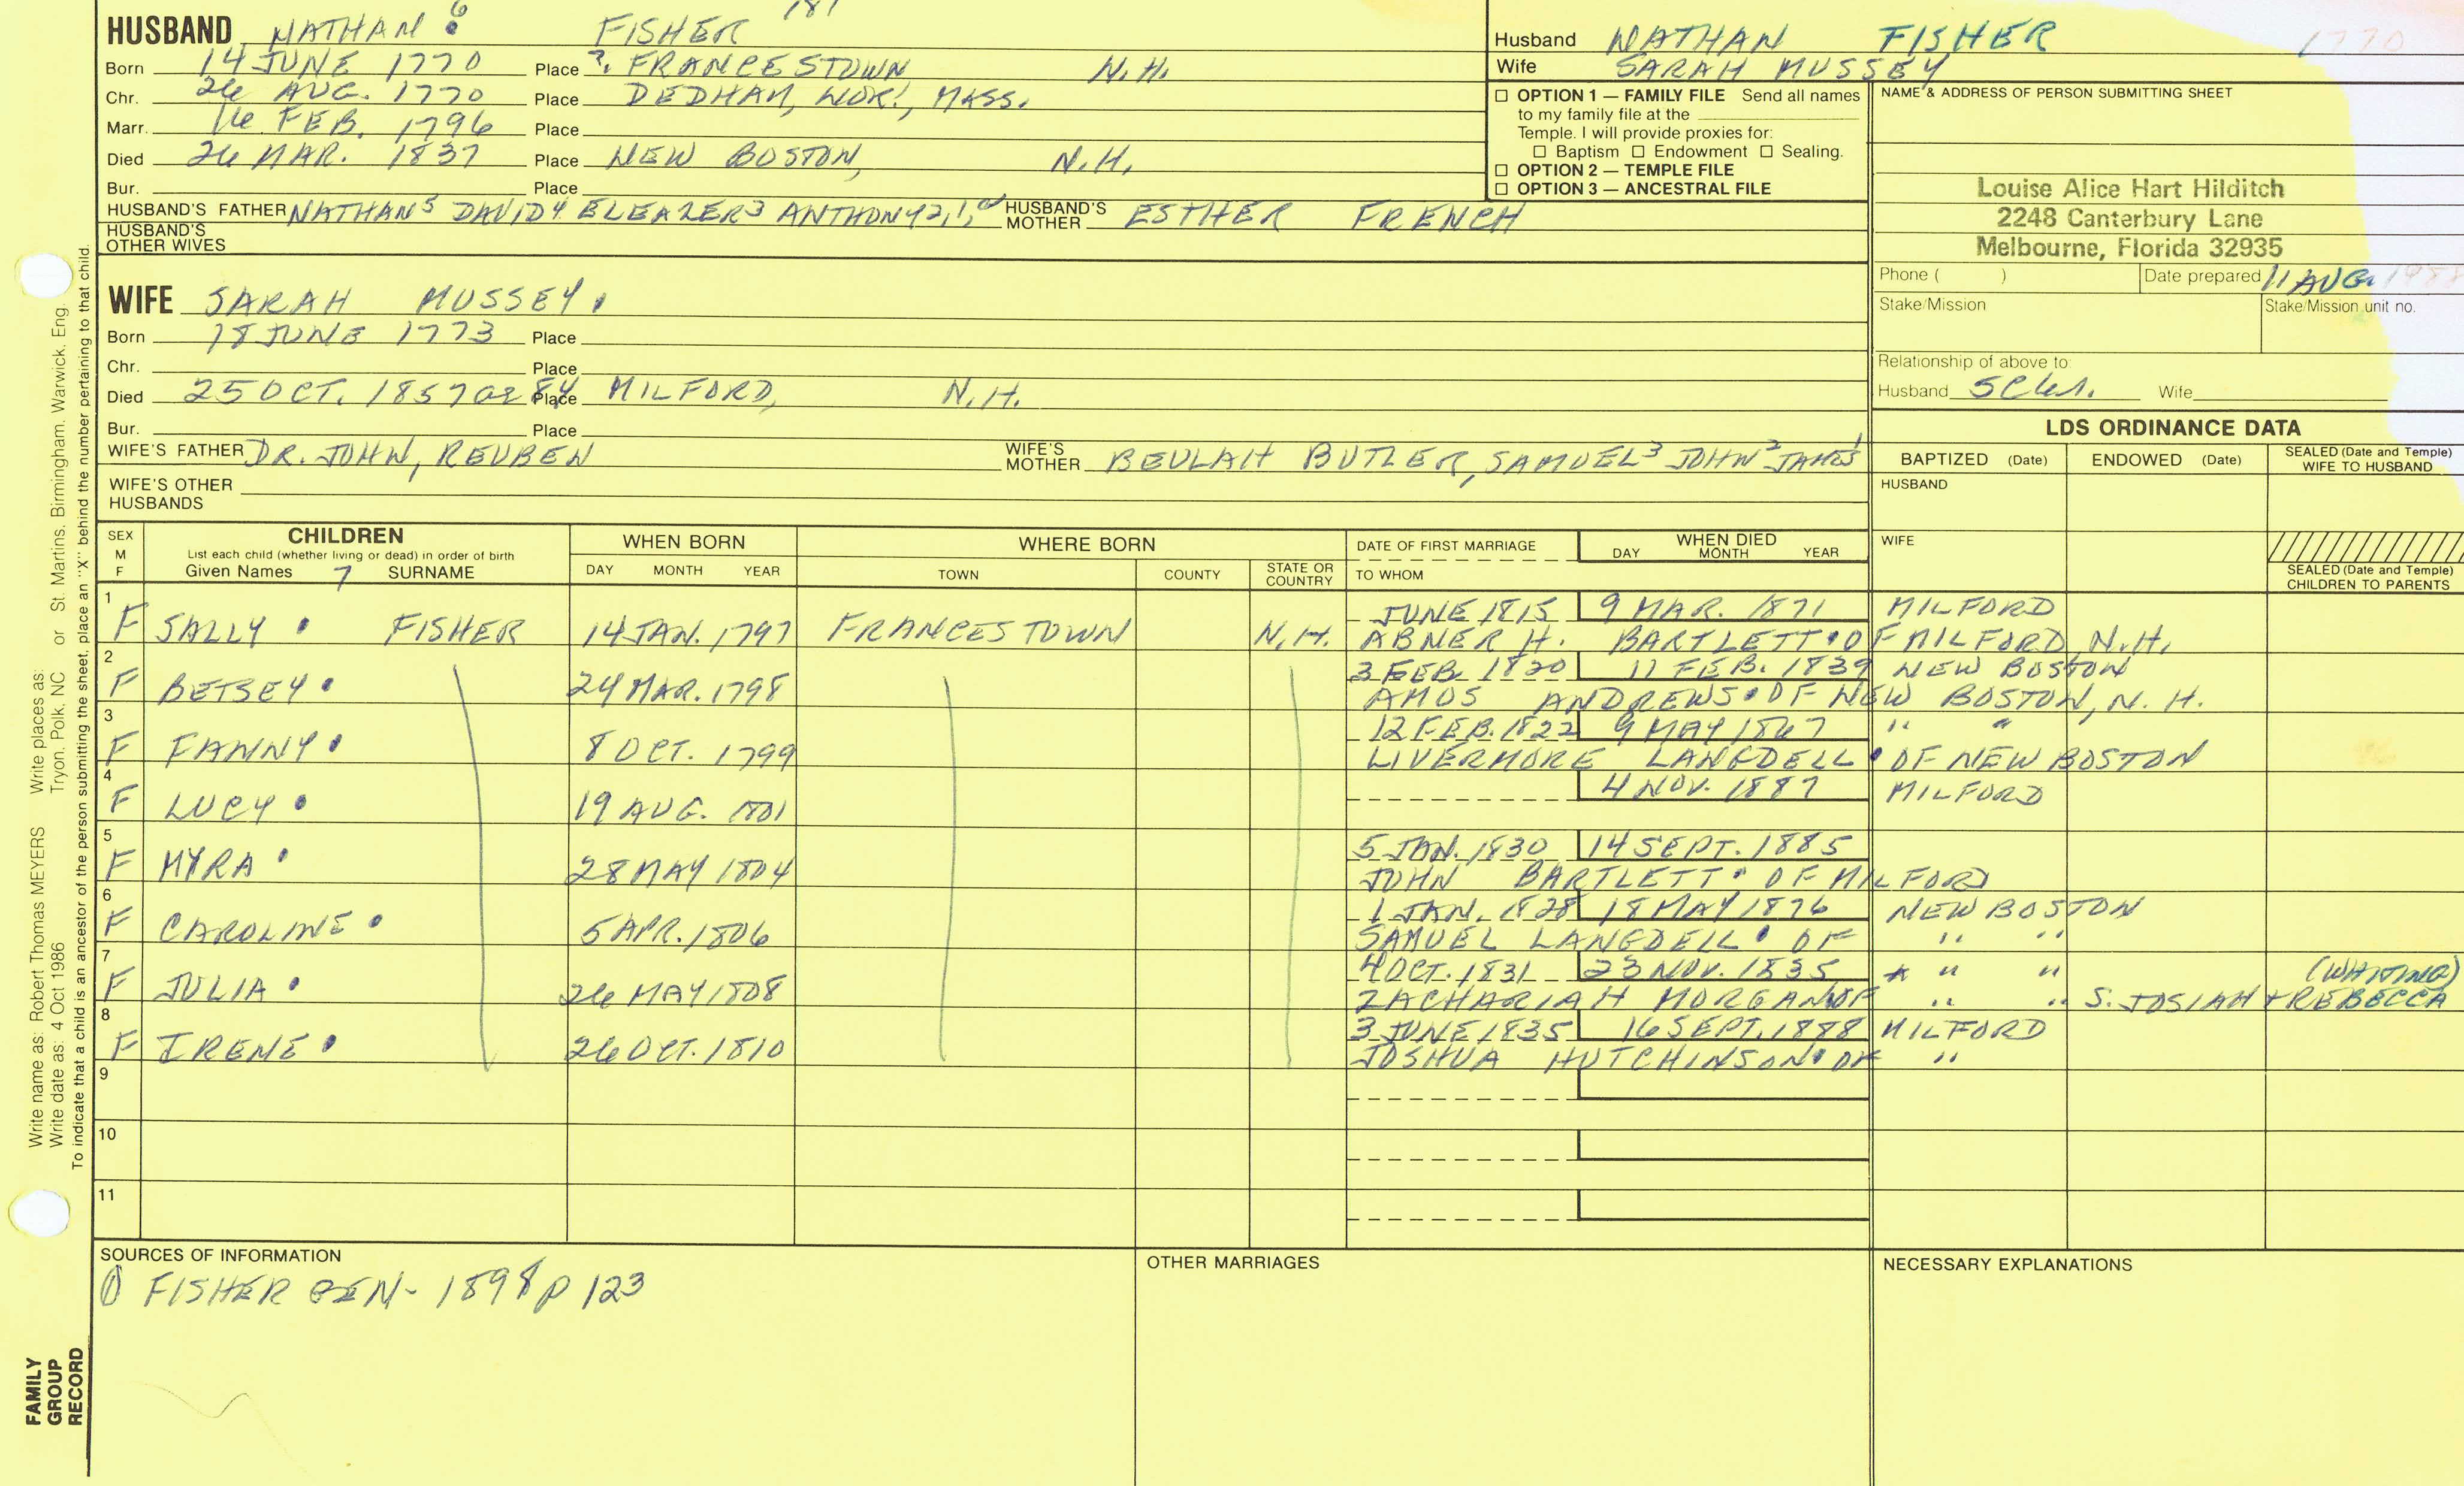 181
HUSBAND NATHAN 6 FISHER
Born 14 JUNE 1770 Place ? FRANCESTOWN N.H.
Chr. 26 AUG. 1770 Place DEDHAM, WOR., MASS.
Marr. 16 FEB. 1796 Place
Died 26 MAR. 1837 Place NEW BOSTON, N.H.
Bur. Place
HUSBAND'S FATHER NATHAN5 DAVID4 ELEAZER3 ANTHONY2,1, HUSBAND'S MOTHER ESTHER FRENCH
HUSBAND'S OTHER WIVES
WIFE SARAH MUSSEY
Born 18 JUNE 1773 Place
Chr. Place
Died 25 OCT. 1857 OR 84 Place MILFORD, N.H.
Bur. Place
WIFE'S FATHER DR. JOHN, REUBEN WIFE'S MOTHER BEULAH BUTLER, SAMUEL3 JOHN2 JAMES1
WIFE'S OTHER HUSBANDS
Husband NATHAN FISHER 1770
Wife SARAH MUSSEY
☐ OPTION 1 — FAMILY FILE Send all names
to my family file at the
Temple. I will provide proxies for:
☐ Baptism ☐ Endowment ☐ Sealing.
☐ OPTION 2 — TEMPLE FILE
☐ OPTION 3 — ANCESTRAL FILE
NAME & ADDRESS OF PERSON SUBMITTING SHEET
Louise Alice Hart Hilditch
2248 Canterbury Lane
Melbourne, Florida 32935
Phone ( ) Date prepared 11 AUG.
Stake/Mission Stake/Mission unit no.
Relationship of above to:
Husband 5C6R. Wife
LDS ORDINANCE DATA
BAPTIZED (Date) ENDOWED (Date) SEALED (Date and Temple) WIFE TO HUSBAND
HUSBAND
WIFE
SEALED (Date and Temple) CHILDREN TO PARENTS
SEX M F CHILDREN WHEN BORN WHERE BORN DATE OF FIRST MARRIAGE WHEN DIED
List each child (whether living or dead) in order of birth
Given Names 7 SURNAME DAY MONTH YEAR TOWN COUNTY STATE OR COUNTRY TO WHOM DAY MONTH YEAR
1 JUNE 1815 9 MAR. 1871 MILFORD
F SALLY FISHER 14 JAN. 1797 FRANCESTOWN N.H. ABNER H. BARTLETT OF MILFORD, N.H.
2 3 FEB. 1820 11 FEB. 1839 NEW BOSTON
F BETSEY 24 MAR. 1798 AMOS ANDREWS OF NEW BOSTON, N.H.
3 12 FEB. 1822 9 MAY 1867 " "
F FANNY 8 OCT. 1799 LIVERMORE LANGDELL OF NEW BOSTON
4 4 NOV. 1887 MILFORD
F LUCY 19 AUG. 1801
5 5 JAN. 1830 14 SEPT. 1885
F MYRA 28 MAY 1804 JOHN BARTLETT OF MILFORD
6 1 JAN. 1828 18 MAY 1876 NEW BOSTON
F CAROLINE 5 APR. 1806 SAMUEL LANGDELL OF " "
7 4 OCT. 1831 23 NOV. 1835 * " " (WHITING)
F JULIA 26 MAY 1808 ZACHARIAH MORGAN OF " " S. JOSIAH + REBECCA
8 3 JUNE 1835 16 SEPT. 1888 MILFORD
F IRENE 26 OCT. 1810 JOSHUA HUTCHINSON OF "
9
10
11
SOURCES OF INFORMATION OTHER MARRIAGES NECESSARY EXPLANATIONS
① FISHER GEN- 1898 p 123
Write name as: Robert Thomas MEYERS Write places as: Tryon, Polk, NC or St. Martins, Birmingham, Warwick, Eng.
Write date as: 4 Oct 1986
To indicate that a child is an ancestor of the person submitting the sheet, place an "X" behind the number pertaining to that child.
FAMILY GROUP RECORD